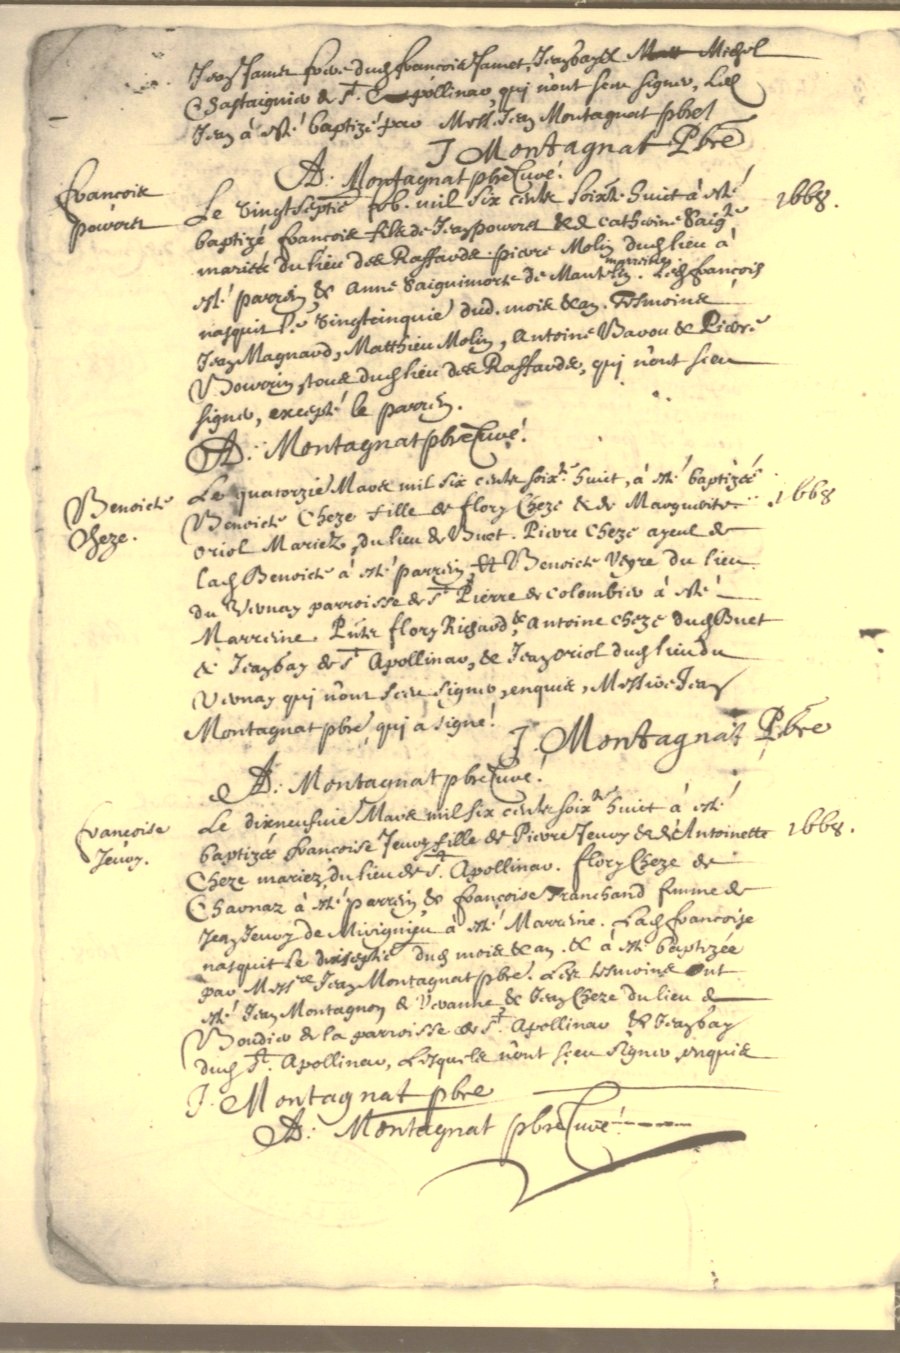 Jean Jamet frere dud. françois Jamet, Jean bayle Michel
Chastaignier de St. Apollinar, qui n'ont sceu signer, Led.
Jean à esté baptizé par Mess. Jean Montagnat pbre
J Montagnat Pbre
A: Montagnat pbre Curé.
françois
poworet
Le vingtseptie feb. mil six cents soixte. huit à esté
1668.
baptizé françois fils de Jean poworet & de Catherine Saig
mariés du lieu des Raffards. pierre Molin dud. lieu à
esté parrein & Anne Saiguimorte de marreine. Led. françois
nasquit le vingtcinquie dud. mois & an. Tesmoins
Jean Magnard, Matthieu Molin, Antoine Bavou & Pierre
tous dud. lieu des Raffards, qui n'ont sceu
signer, excepté le parrein.
A: Montagnat pbre Curé.
Benoicte
Cheze.
Le quatorzie Mars mil six cents soixte. huit, à esté baptizée
1668
Benoicte Cheze fille de flory Cheze & de Marguerite
Oriol Mariez, du lieu de Buet. Pierre Cheze ayeul de
lad. Benoicte à esté parrein, Et Benoicte Veyre du lieu
du Vernay parroisse de St. Pierre de Colombier à esté
Marreine. Pnts flory Richard, & Antoine Cheze dud. Buet
& Jean bay de St. Apollinar, & Jean Oriol dud. lieu du
Vernay qui n'ont sceu signer, enquis, Messire Jean
Montagnat pbre, qui à signé.
J. Montagnat Pbre
A: Montagnat pbre Curé.
françoise
Jeuvy.
Le dixneufuie Mars mil six cents soixte. huict à esté
baptizée françoise Jeuvy fille de Pierre Jeuvy & d'Antoinette
1668.
Cheze mariez, du lieu de St. Apollinar. flory Cheze de
Charnas à esté parrein & françoise Tranchand femme de
Jean Jeuvy de Mivignieu à esté Marreine. Lad. françoise
nasquit le dixseptie dud. mois & an. & à esté baptizée
par Messre Jean Montagnat pbre. Les tesmoins ont
esté Jean Montagnon de Veranne & Jean Cheze du lieu de
Boudier de la parroisse de St. Apollinar & Jean bay
dud. St. Apollinar, Lesquels n'ont sceu signer, enquis
J. Montagnat pbre
A: Montagnat pbre Curé.